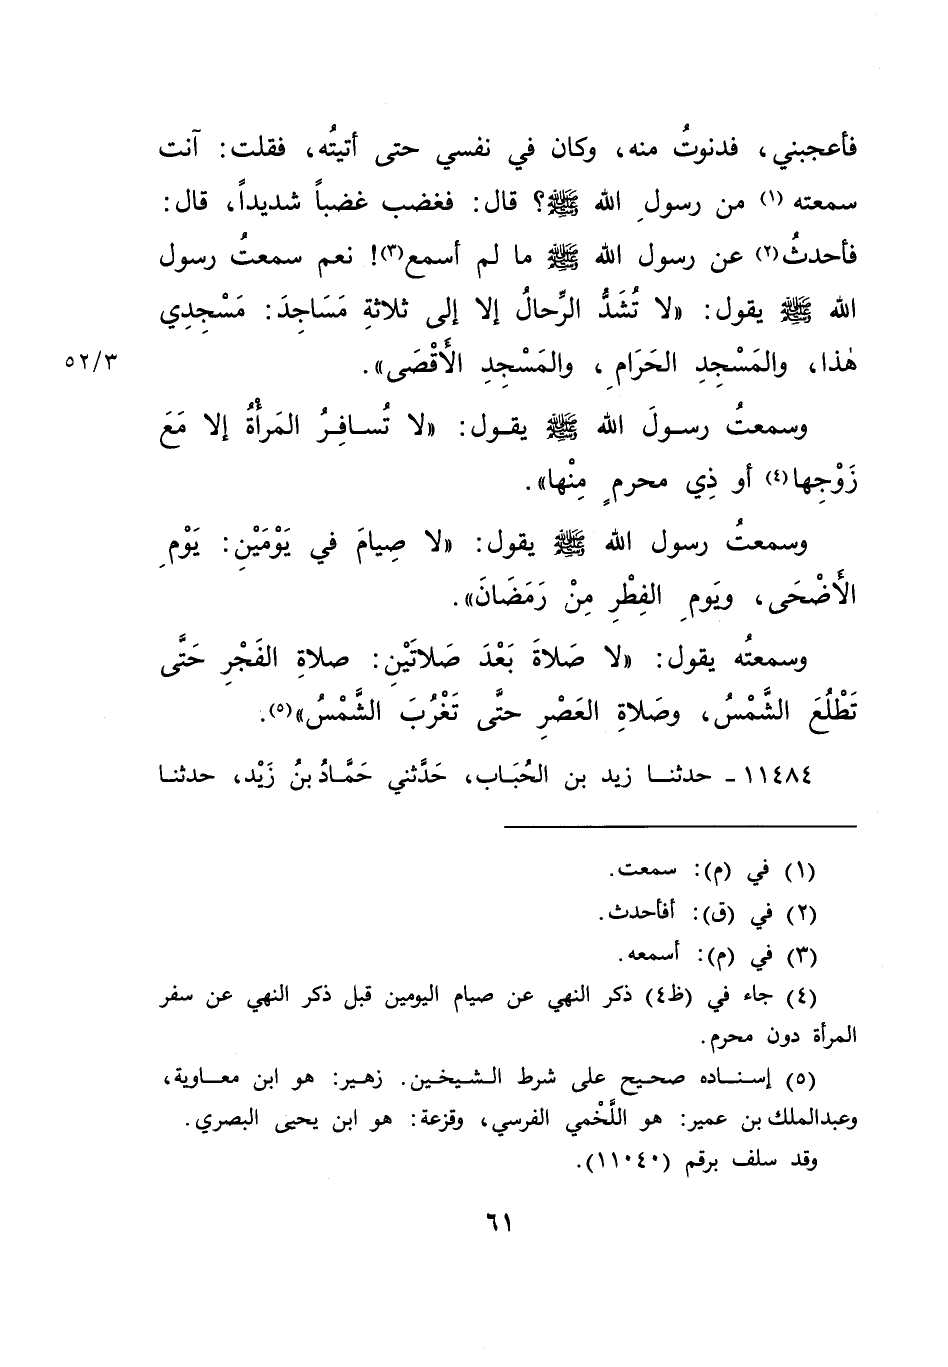 فأعجبني، فدنوتُ منه، وكان في نفسي حتى أتيتُه، فقلت: آنت
سمعته (١) من رسولِ الله ﷺ؟ قال: فغضب غضباً شديداً، قال:
فأحدثُ(٢) عن رسول الله ﷺ ما لم أسمع(٣)! نعم سمعتُ رسول
الله ﷺ يقول: «لا تُشَدُّ الرِّحالُ إلا إلى ثلاثةِ مَسَاجِدَ: مَسْجِدِي
هٰذا، والمَسْجِدِ الحَرَامِ، والمَسْجِدِ الأَقْصَى».
٥٢/٣
وسمعتُ رسولَ الله ﷺ يقول: «لا تُسافِرُ المَرأَةُ إلا مَعَ
زَوْجِها(٤) أو ذِي محرمٍ مِنْها».
وسمعتُ رسول الله ﷺ يقول: «لا صِيامَ في يَوْمَيْنِ: يَوْمِ
الأَضْحَى، ويَومِ الفِطْرِ مِنْ رَمَضَانَ».
وسمعتُه يقول: «لا صَلاةَ بَعْدَ صَلاتَيْنِ: صلاةِ الفَجْرِ حَتَّى
تَطْلُعَ الشَّمْسُ، وصَلاةِ العَصْرِ حتَّى تَغْرُبَ الشَّمْسُ»(٥).
١١٤٨٤ - حدثنا زيد بن الحُبَاب، حَدَّثني حَمَّادُ بنُ زَيْد، حدثنا
(١) في (م): سمعت.
(٢) في (ق): أفأحدث.
(٣) في (م): أسمعه.
(٤) جاء في (ظ٤) ذكر النهي عن صيام اليومين قبل ذكر النهي عن سفر
المرأة دون محرم.
(٥) إسناده صحيح على شرط الشيخين. زهير: هو ابن معاوية،
وعبدالملك بن عمير: هو اللَّخْمي الفرسي، وقزعة: هو ابن يحيى البصري.
وقد سلف برقم (١١٠٤٠).
٦١